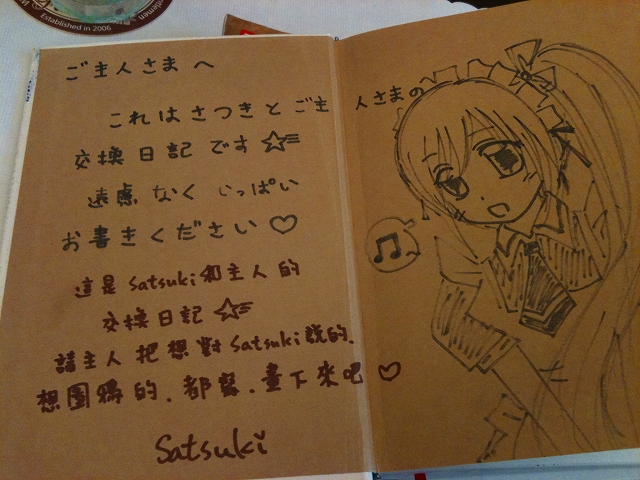 Established in 2006
ご主人さまへ
これはさつきとご主人さまの
交換日記です☆
遠慮なくいっぱい
お書きください♡
這是satsuki和主人的
交換日記☆
請主人把想對satsuki說的、
想圖鴉的、都盡、畫下來吧♡
Satsuki